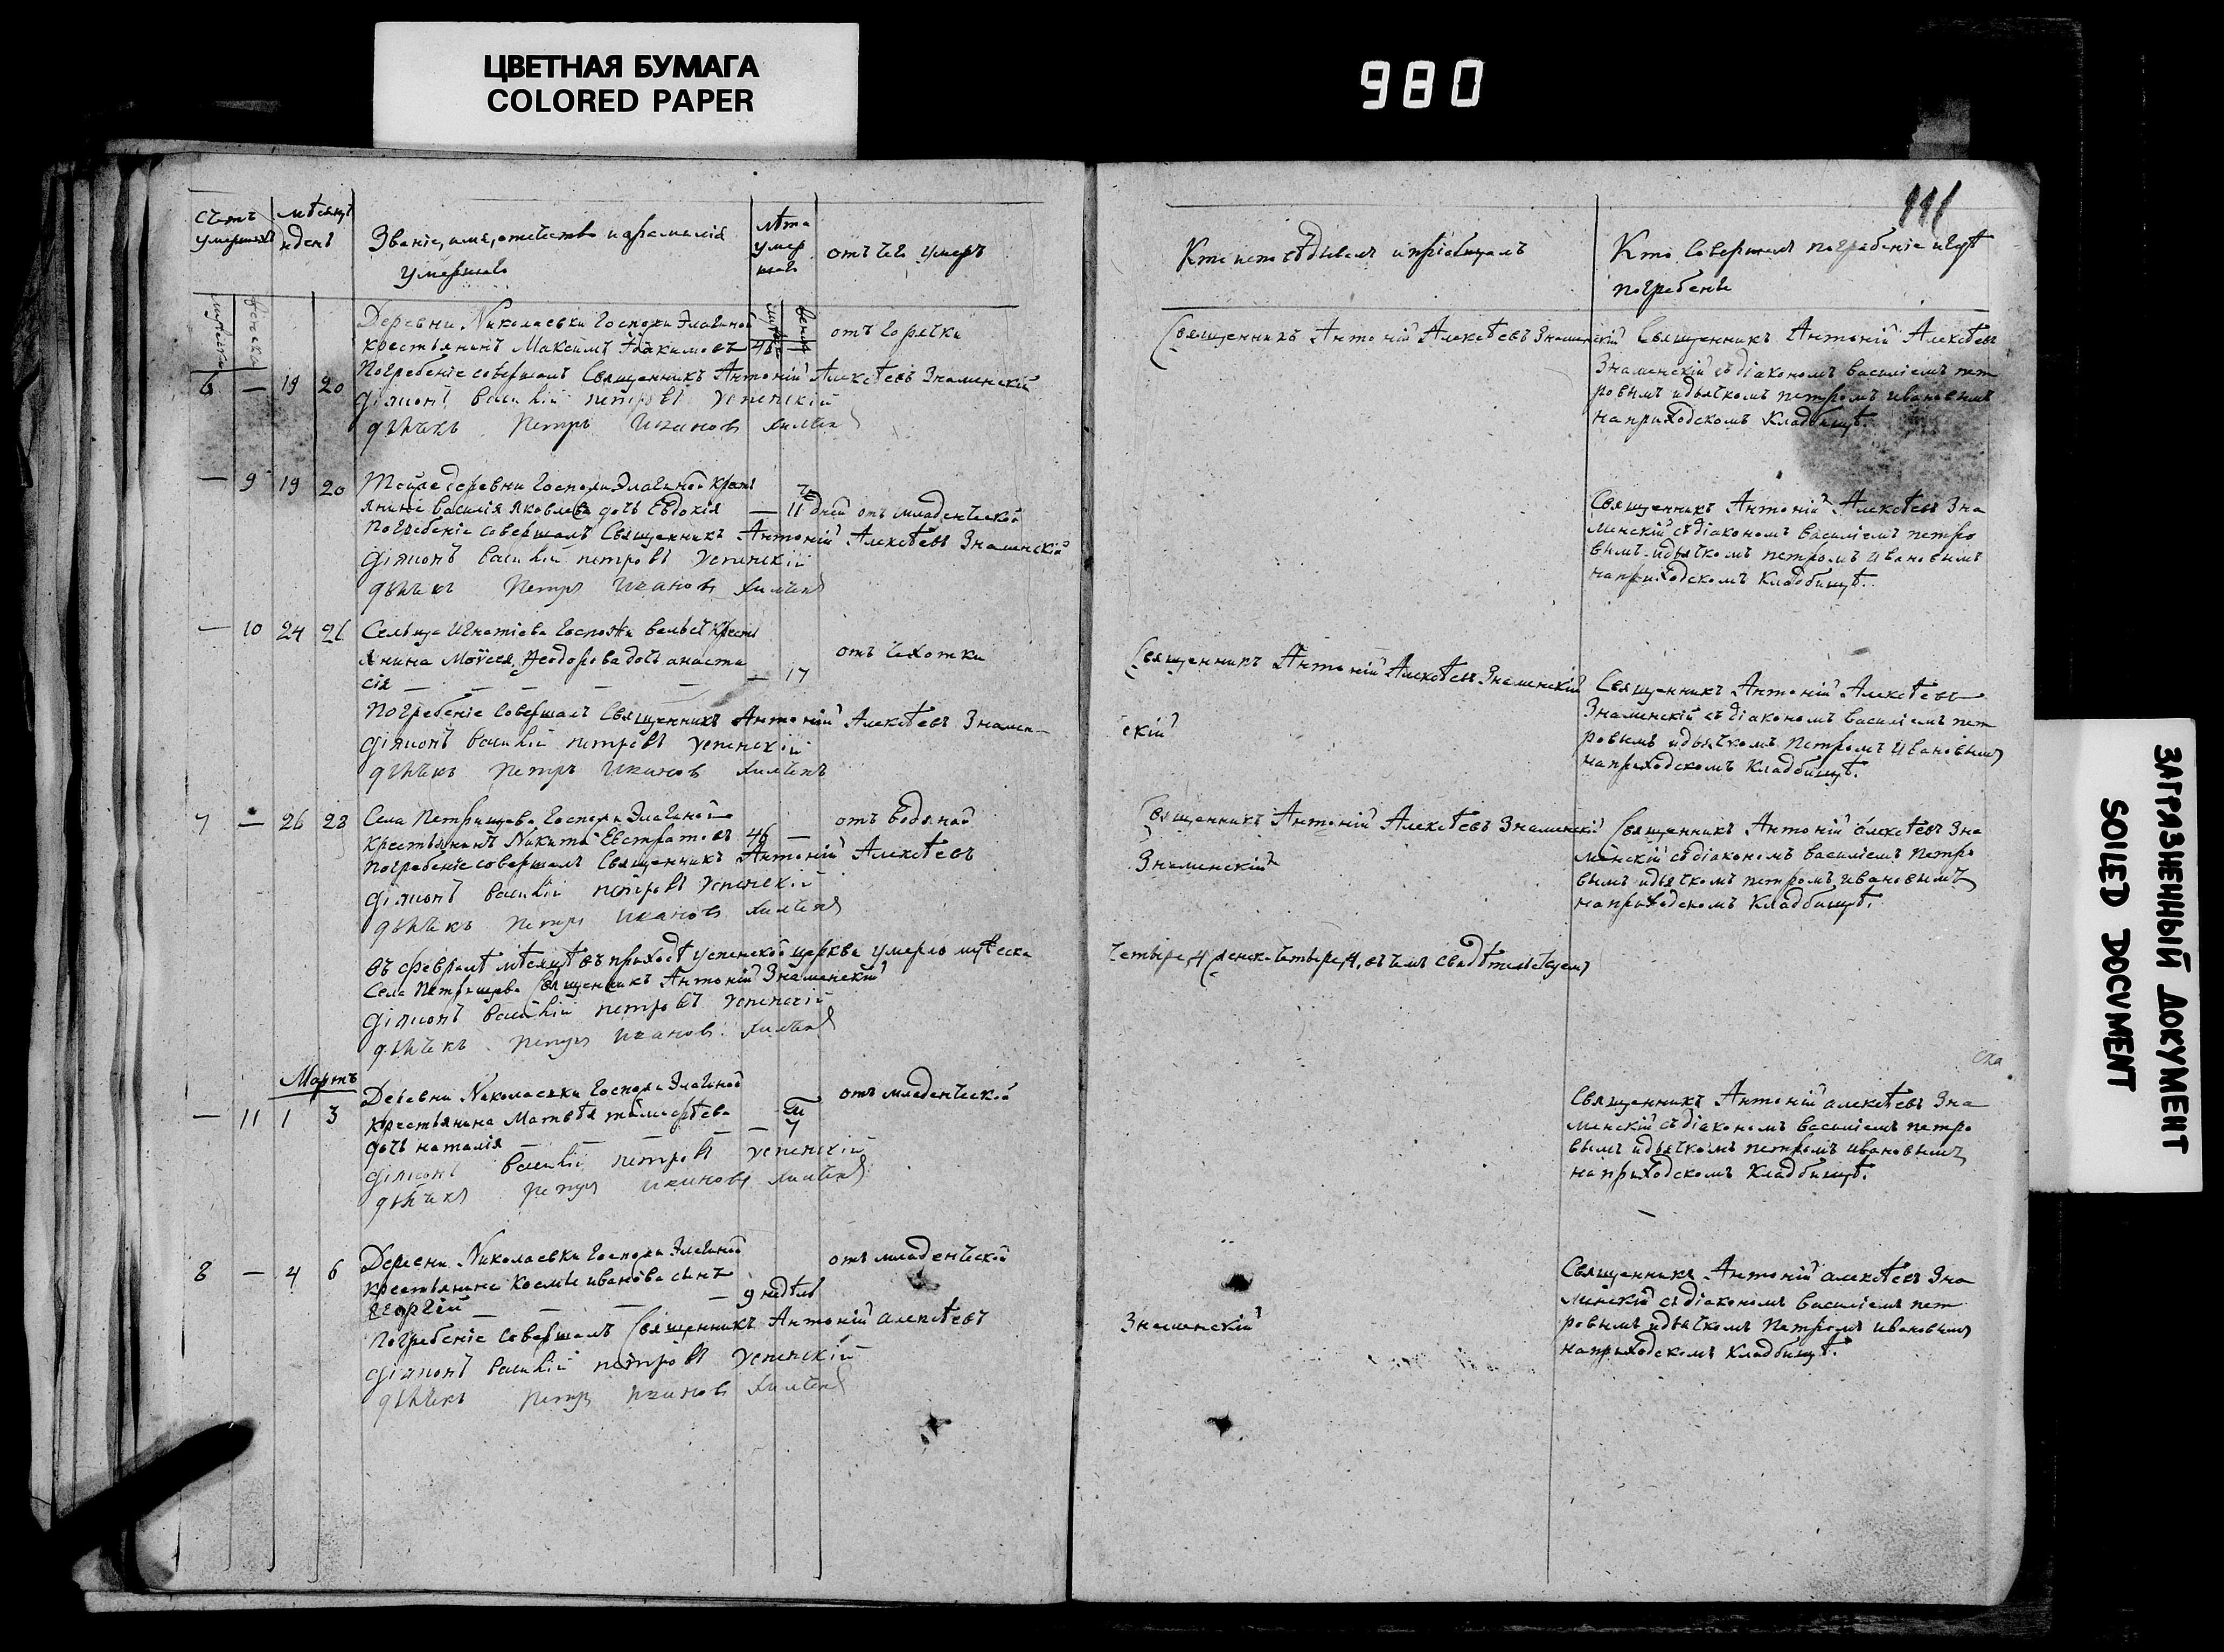 ЦВЕТНАЯ БУМАГА
COLORED PAPER
980
111
Счетъ умершихъ
мѣсяцъ и день
Званіе, имя, отчество и фамилія
умершаго
лѣта умершаго
отъ чего умеръ
Кто исповѣдывалъ и пріобщалъ
Кто совершалъ погребеніе и гдѣ
погребены
мужеска
женска
Деревни Николаевки Госпожи Элагиной
отъ горячки
крестьянинъ Максимъ 46 —
6 — 19 20
Погребеніе совершалъ Священникъ Антоній Алексѣевъ Знаменскій
діяконъ василій петровъ успенскій
дьячекъ Петръ Ивановъ
Священникъ Антоній Алексѣевъ Знаменскій
Священникъ Антоній Алексѣевъ
Знаменскій съ діакономъ василіемъ пет
ровымъ и дьячкомъ петромъ ивановымъ
на приходскомъ кладбищѣ.
— 9 19 20
Тойже деревни Госпожи Элагиной крест
янина василія Яковлева дочь Евдокія — 11 дней отъ младенческой
Погребеніе совершалъ Священникъ Антоній Алексѣевъ Знаменскій
діяконъ василій петровъ успенскій
дьячекъ Петръ Ивановъ
Священникъ Антоній Алексѣевъ Зна
менскій съ діакономъ василіемъ петро
вымъ и дьячкомъ петромъ ивановымъ
на приходскомъ кладбищѣ.
— 10 24 26
Сельца Игнатіева Госпожи крест
янина Моѵсея Ѳеодорова дочь анаста
сія — — — — — — 17
отъ чехотки
Погребеніе совершалъ Священникъ Антоній Алексѣевъ Знамен-
скій
діяконъ василій петровъ успенскій
дьячекъ Петръ Ивановъ
Священникъ Антоній Алексѣевъ Знаменскій
Священникъ Антоній Алексѣевъ
Знаменскій съ діакономъ василіемъ пет
ровымъ и дьячкомъ Петромъ Ивановымъ
на приходскомъ кладбищѣ.
7 — 26 28
Села Петрищева Госпожи Элагиной
отъ водяной
Крестьянинъ Никита Евстратовъ 46 —
Погребеніе совершалъ Священникъ Антоній Алексѣевъ
Знаменскій
діяконъ василій петровъ успенскій
дьячекъ Петръ Ивановъ
Священникъ Антоній Алексѣевъ Знаменскій
Священникъ Антоній алексѣевъ Зна
менскій съ діакономъ василіемъ Петро
вымъ и дьячкомъ петромъ ивановымъ
на приходскомъ кладбищѣ.
Въ февралѣ мѣсяцѣ въ приходѣ успенской церкви умерло мужеска
четыре, 4, женска четыре, 4, въ чемъ свидѣтельствуемъ
Села Петрищева Священникъ Антоній Знаменскій
діяконъ василій петровъ успенскій
дьячекъ Петръ Ивановъ
Мартъ
— 11 1 3
Деревни Николаевки Госпожи Элагиной
отъ младенческой
крестьянина Матвѣя
дочь наталія — — — — 7
діяконъ василій петровъ успенскій
дьячекъ петръ ивановъ
Священникъ Антоній алексѣевъ Зна
менскій съ діакономъ василіемъ петро
вымъ и дьячкомъ петромъ ивановымъ
на приходскомъ кладбищѣ.
8 — 4 6
Деревни Николаевки Госпожи Элагиной
отъ младенческой
крестьянина Космы иванова сынъ
георгій — — — — 9 недѣль
Погребеніе совершалъ Священникъ Антоній алексѣевъ
Знаменскій
діяконъ василій петровъ успенскій
дьячекъ петръ ивановъ
Священникъ Антоній алексѣевъ Зна
менскій съ діакономъ василіемъ пет
ровымъ и дьячкомъ Петромъ ивановымъ
на приходскомъ кладбищѣ.
ЗАГРЯЗНЕННЫЙ ДОКУМЕНТ
SOILED DOCUMENT